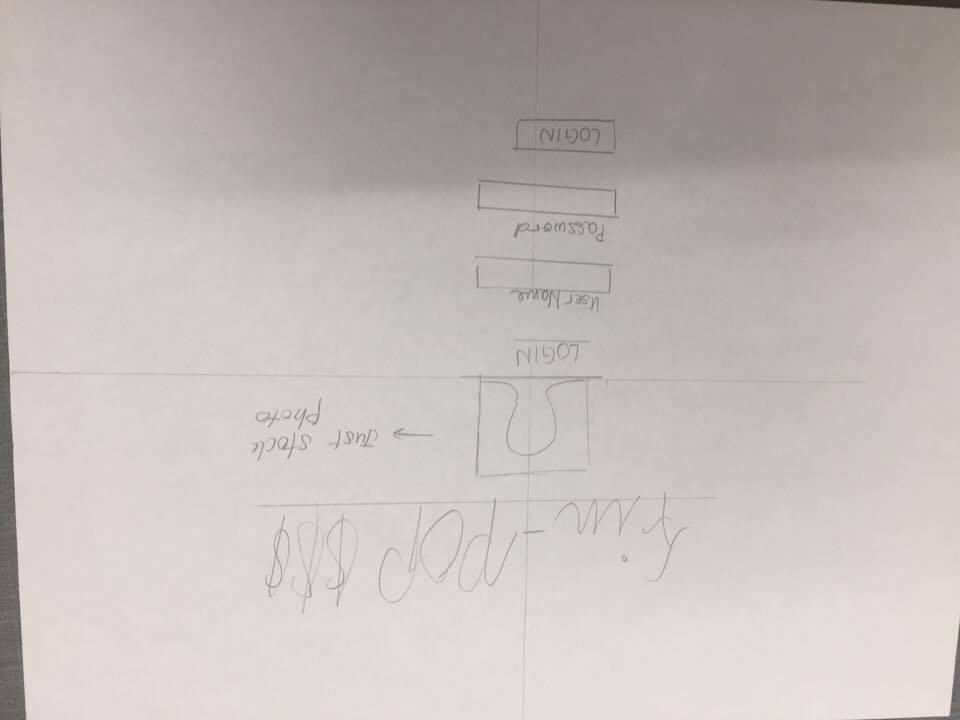 Fin-POP $$$
Just stock
photo
LOGIN
UserName
Password
LOGIN